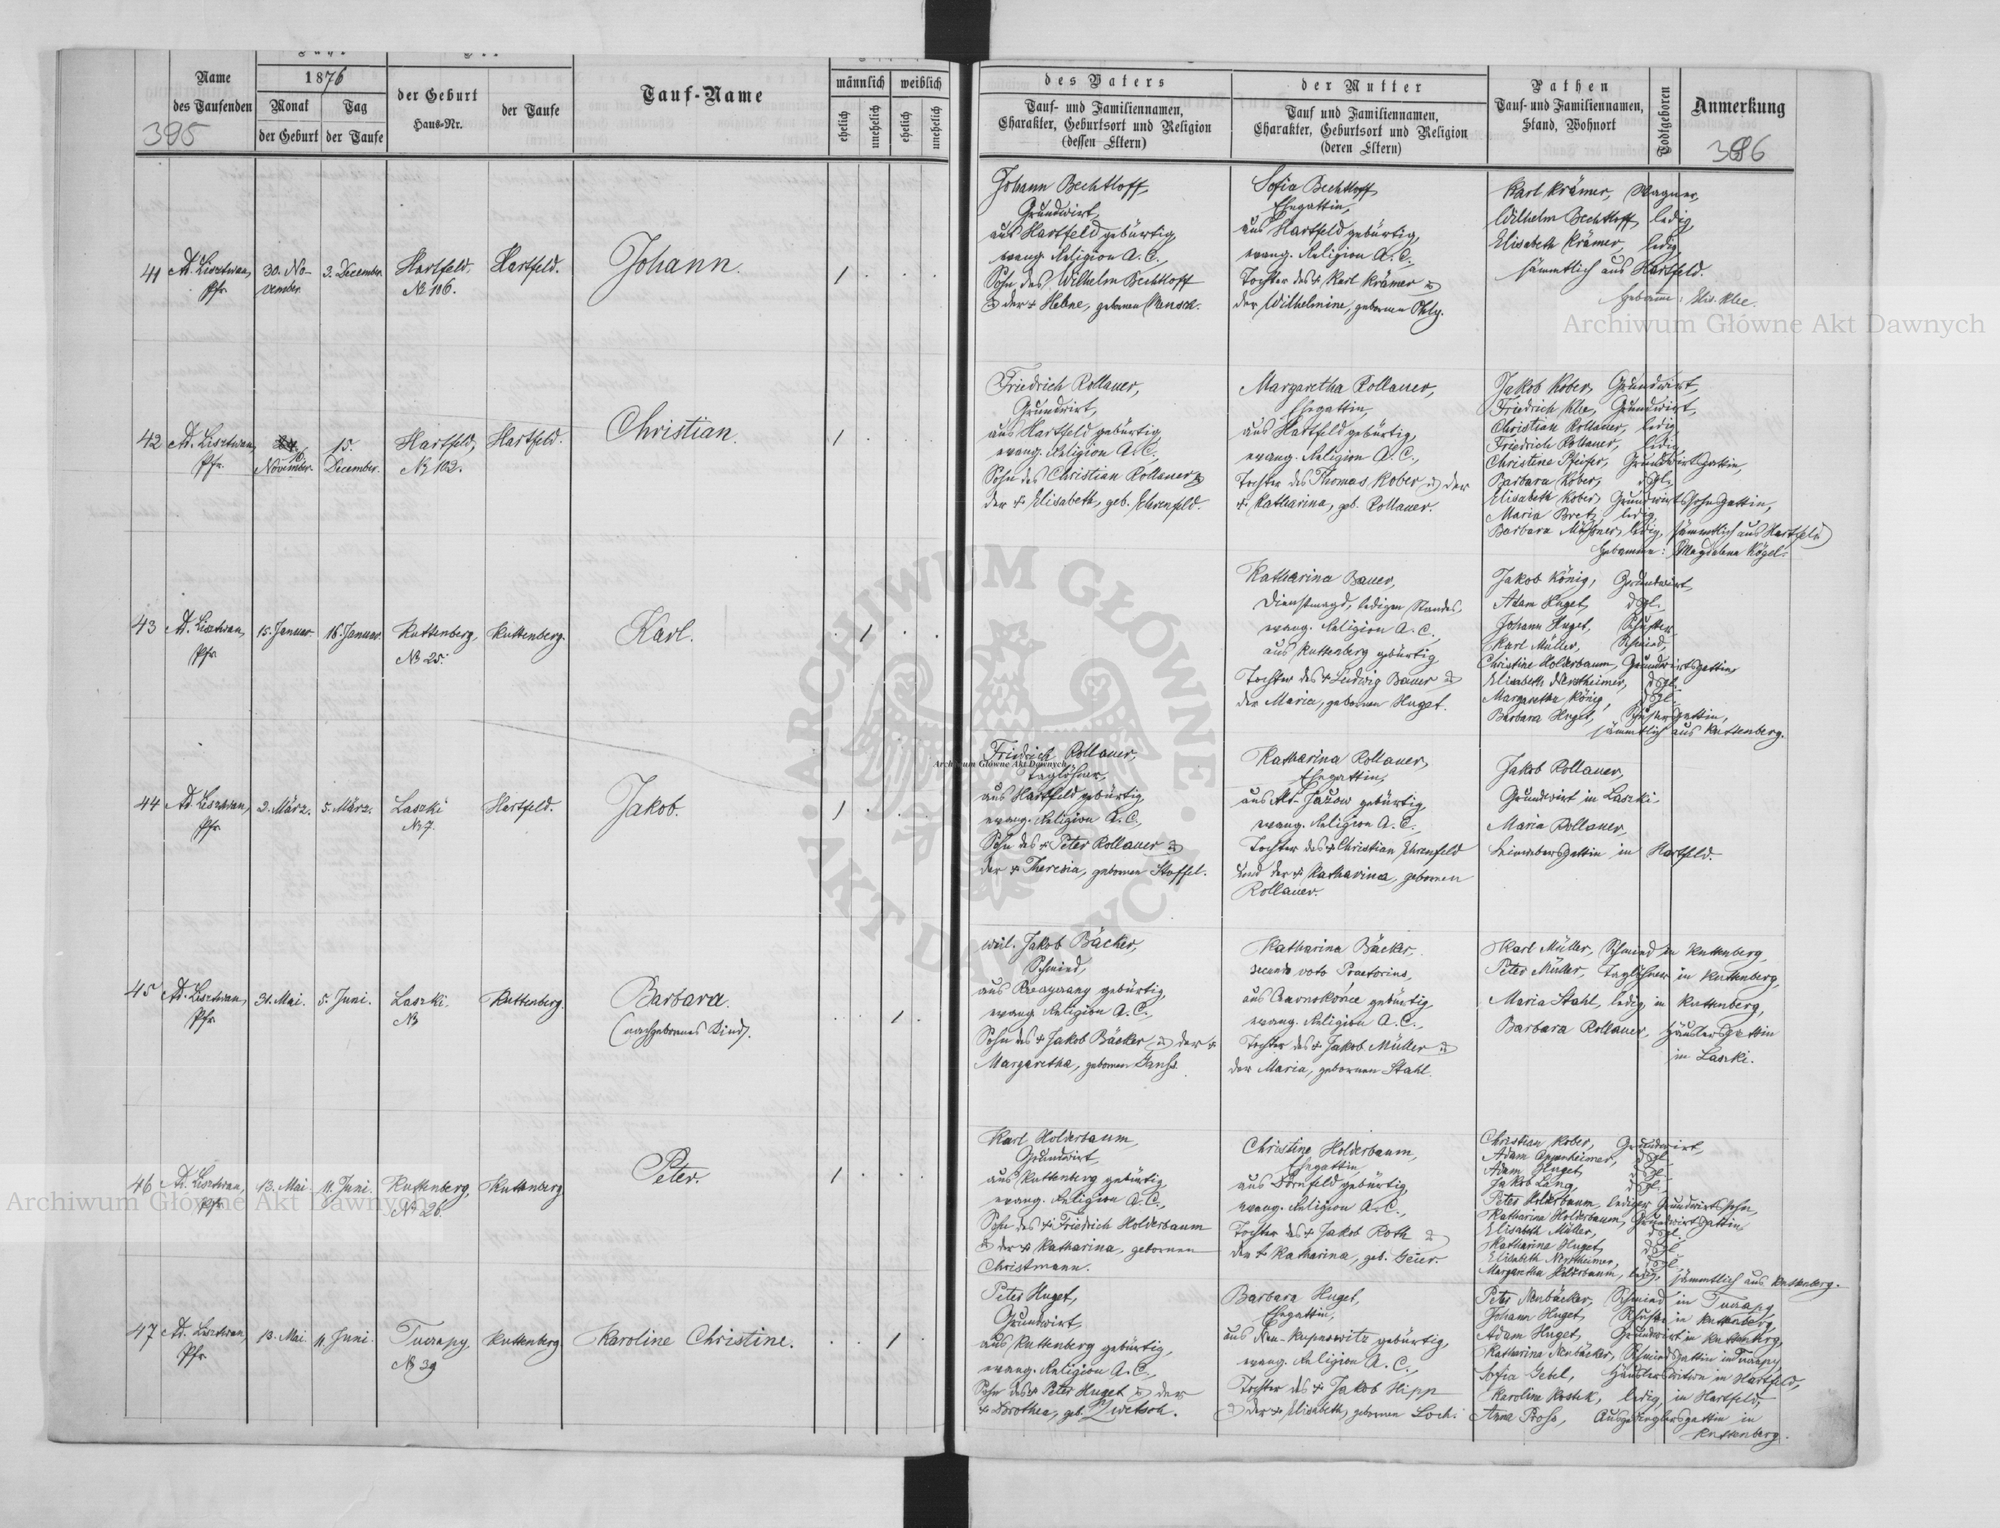 Name
des Taufenden
1876
Monat
Tag
der Geburt
der Taufe
der Geburt
Haus-Nr.
der Taufe
Tauf-Name
männlich
weiblich
ehelich
unehelich
ehelich
unehelich
395
des Vaters
Tauf- und Familiennamen,
Charakter, Geburtsort und Religion
(dessen Eltern)
der Mutter
Tauf und Familiennamen,
Charakter, Geburtsort und Religion
(deren Eltern)
Pathen
Tauf- und Familiennamen,
Stand, Wohnort
Todtgeboren
Anmerkung
396
41
Pfr.
30. November
3. December
Hartfeld.
№ 106.
Hartfeld.
Johann.
1
Johann Bechtloff,
Grundwirt,
aus Hartfeld gebürtig,
evang. Religion A. C.,
Sohn des Wilhelm Bechtloff
Sofia Bechtloff
Ehegattin,
aus Hartfeld gebürtig,
evang. Religion A. C.,
Tochter des + Karl Krämer u.
der Wilhelmine, gebornen Ohly.
Karl Krämer, Wagner,
Wilhelm Bechtloff, ledig,
Elisabeth Krämer, ledig,
sämmtlich aus Hartfeld.
Hebamme: Elis. Klee.
42
Pfr.
November.
15. December.
Hartfeld,
№ 102.
Hartfeld.
Christian.
1
Friedrich Rollauer,
Grundwirt,
aus Hartfeld gebürtig
evang. Religion A. C.,
Sohn des Christian Rollauer u.
der + Elisabeth, geb. Ehrenfeld.
Margaretha Rollauer,
Ehegattin,
aus Hartfeld gebürtig,
evang. Religion A. C.,
Tochter des Thomas Kober u. der
+ Katharina, geb. Rollauer.
Jakob Kober, Grundwirt,
Friedrich Klee, Grundwirt,
Christian Rollauer, ledig
Friedrich Rollauer, ledig,
Christine Pfeifer, Grundwirtsgattin,
Barbara Kober, dgl.,
Elisabeth Kober, Grundwirtssohnsgattin,
Maria Bretz, ledig
Barbara Mössner, ledig, sämmtlich aus Hartfeld
Hebamme: Magdalena Kögel.
43
Pfr.
15. Januar.
16. Januar.
Ruttenberg,
№ 25.
Ruttenberg.
Karl.
1
Katharina Bauer,
Dienstmagd, ledigen Standes,
evang. Religion A. C.,
aus Ruttenberg gebürtig
Tochter des + Ludwig Bauer u.
der Maria, gebornen Huget.
Jakob König, Grundwirt,
Adam Huget, dgl.,
Johann Huget, Schuster,
Karl Müller, Schmied,
Christine Holderbaum, Grundwirtsgattin
Margaretha König, dgl.
Barbara Huget, Schustersgattin,
sämmtlich aus Ruttenberg.
44
Pfr.
2. März.
5. März.
Laszki
№ 7.
Hartfeld.
Jakob.
1
Friedrich Rollauer,
Taglöhner,
aus Hartfeld gebürtig,
evang. Religion A. C.,
Sohn des + Peter Rollauer u.
der + Theresia, gebornen Stoffel.
Katharina Rollauer,
Ehegattin,
aus Alt-Jazow gebürtig,
evang. Religion A. C.,
Tochter des + Christian Ehrenfeld
und der + Katharina, gebornen
Rollauer.
Jakob Rollauer,
Grundwirt in Laszki.
Maria Rollauer,
Leinwebersgattin in Hartfeld.
45
Pfr.
31. Mai.
5. Juni.
Laszki.
№
Ruttenberg.
Barbara.
(nachgebornes Kind).
1
weil. Jakob Bäcker,
Schmied,
gebürtig,
evang. Religion A. C.,
Sohn des + Jakob Bäcker, u. der +
Margaretha, gebornen
Katharina Bäcker
secundo voto Praetorius,
gebürtig
evang. Religion A. C.,
Tochter des + Jakob Müller u.
der Maria, gebornen Stahl.
Karl Müller, Schmied in Ruttenberg,
Peter Müller, Taglöhner in Ruttenberg,
Maria Stahl, ledig, in Ruttenberg,
Barbara Rollauer, Häuslersgattin
in Laszki.
46
Pfr.
13. Mai
11. Juni.
Ruttenberg,
№ 26.
Ruttenberg
Peter.
1
Karl Holderbaum,
Grundwirt,
aus Ruttenberg gebürtig
evang. Religion A. C.,
Sohn des + Friedrich Holderbaum
u. der + Katharina, gebornen
Christmann.
Christine Holderbaum,
Ehegattin,
aus Dornfeld gebürtig,
evang. Religion A. C.,
Tochter des + Jakob Roth u.
der + Katharina, geb. Geier.
Christian Kober, Grundwirt,
Adam Oppenheimer, dgl.,
Adam Huget, dgl.,
Jakob Lang, dgl.,
Peter Holderbaum, lediger Grundwirtssohn,
Katharina Holderbaum, Grundwirtsgattin
Elisabeth Müller, dgl.
Katharina Huget, dgl.
Margaretha Holderbaum, ledig, sämmtlich aus Ruttenberg.
47
Pfr.
13. Mai
11. Juni.
№ 39
Ruttenberg.
Karoline Christine.
1
Peter Huget,
Grundwirt,
aus Ruttenberg gebürtig,
evang. Religion A. C.,
Sohn des + Peter Huget u. der
+ Dorothea, geb. Zwetsch.
Barbara Huget,
Ehegattin,
gebürtig,
evang. Religion A. C.,
Tochter des + Jakob Hipp
u. der + Elisabeth, gebornen Loch.
Peter Neubäcker, Schmied in
Johann Huget, Schuster in Ruttenberg,
Adam Huget, Grundwirt in Ruttenberg,
Katharina Neubäcker, Schmiedsgattin in
Sofia Gebel, Häuslerswitwe in Hartfeld,
ledig, in Hartfeld,
in
Ruttenberg.
Archiwum Główne Akt Dawnych
Archiwum Główne Akt Dawnych
Archiwum Główne Akt Dawnych
ARCHIWUM GŁÓWNE AKT DAWNYCH